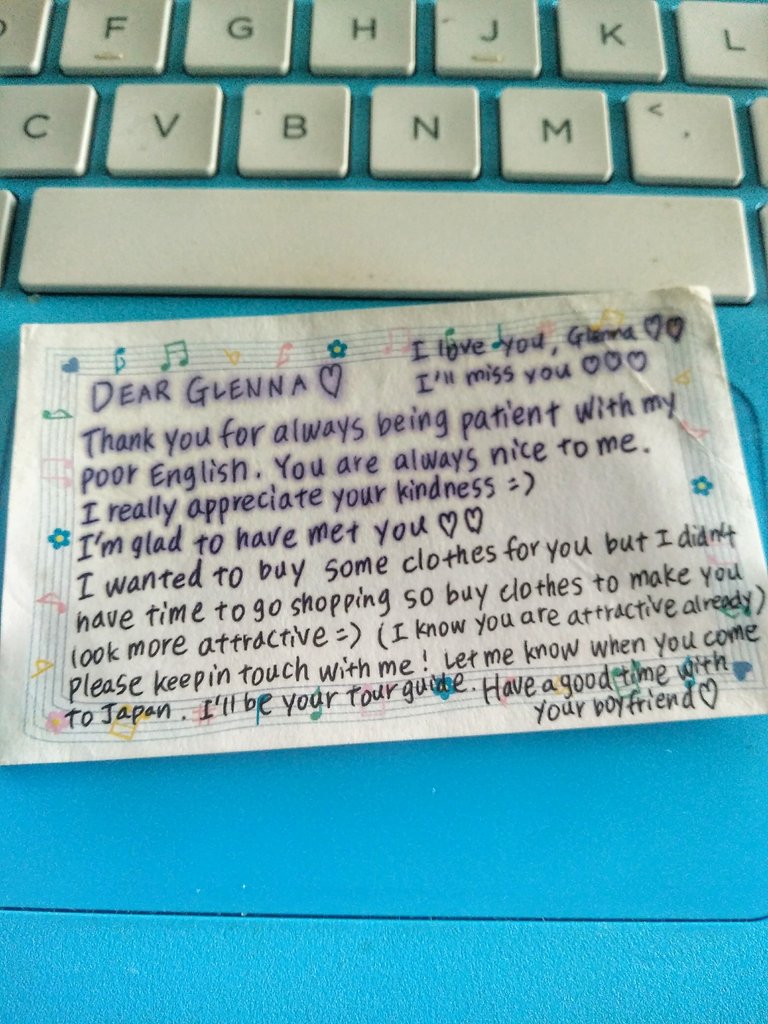 F G H J K L
C V B N M < ,
I love you, Glenna ♡♡
I'll miss you ♡♡♡
DEAR GLENNA ♡
Thank you for always being patient with my
poor English. You are always nice to me.
I really appreciate your kindness =)
I'm glad to have met you ♡♡
I wanted to buy some clothes for you but I didn't
have time to go shopping so buy clothes to make you
look more attractive =) (I know you are attractive already)
please keep in touch with me! Let me know when you come
to Japan. I'll be your tour guide. Have a good time with
your boyfriend ♡